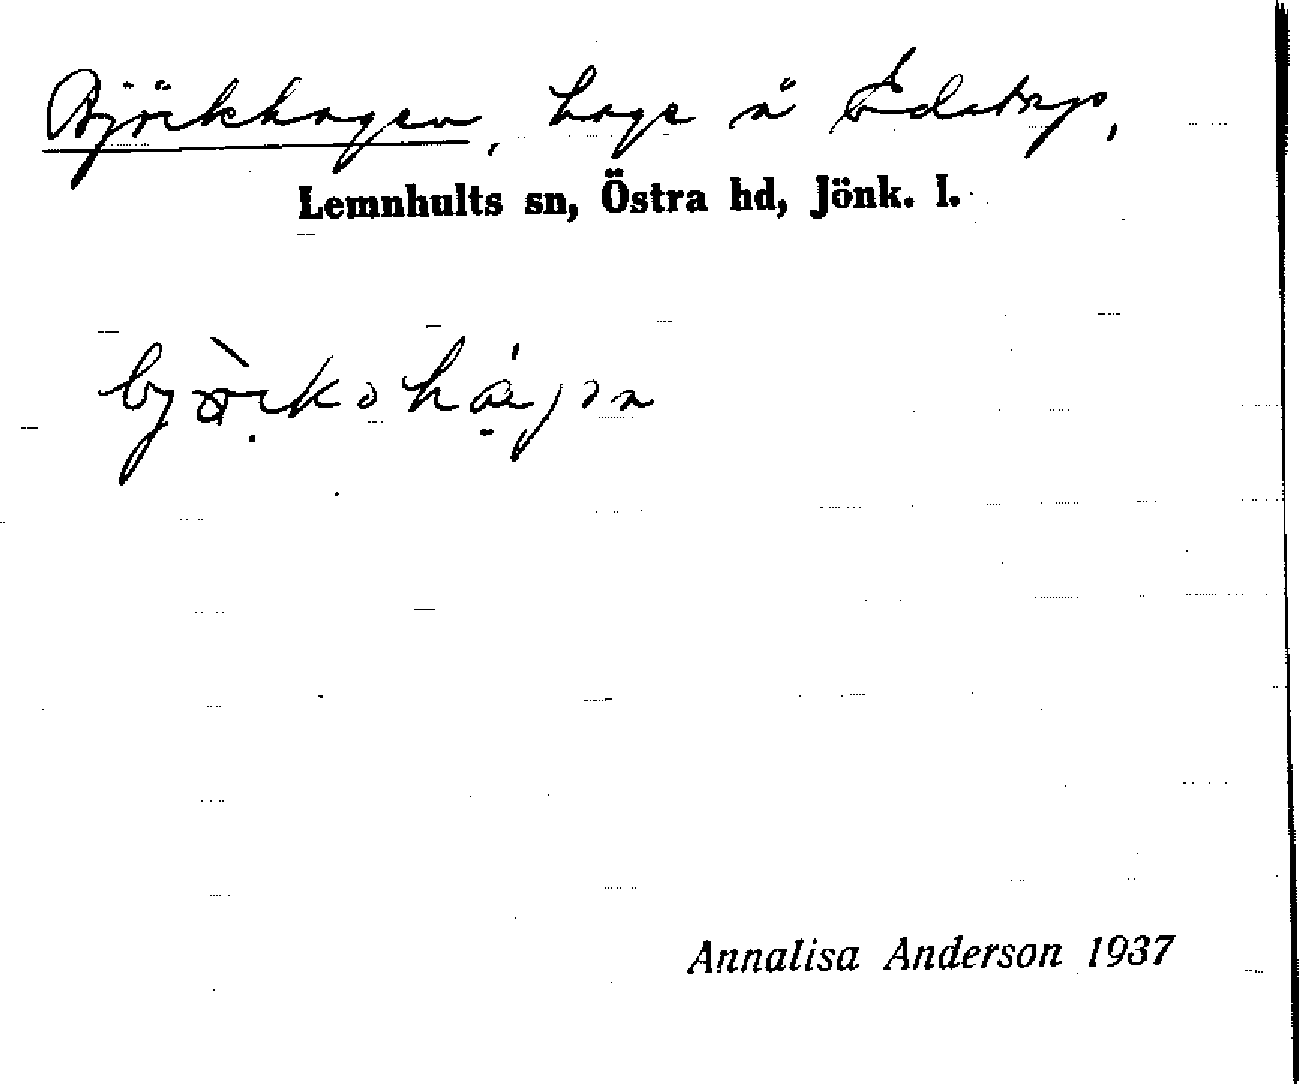 Björkhagen, hage å Edstorp,
Lemnhults sn, Östra hd, Jönk. l.
Annalisa Anderson 1937